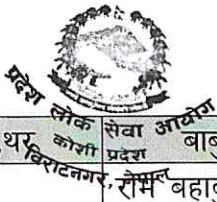 प्रदेश लोक सेवा आयोग
कोशी प्रदेश
विराटनगर, नेपाल
थर
बाब
राम बहादु